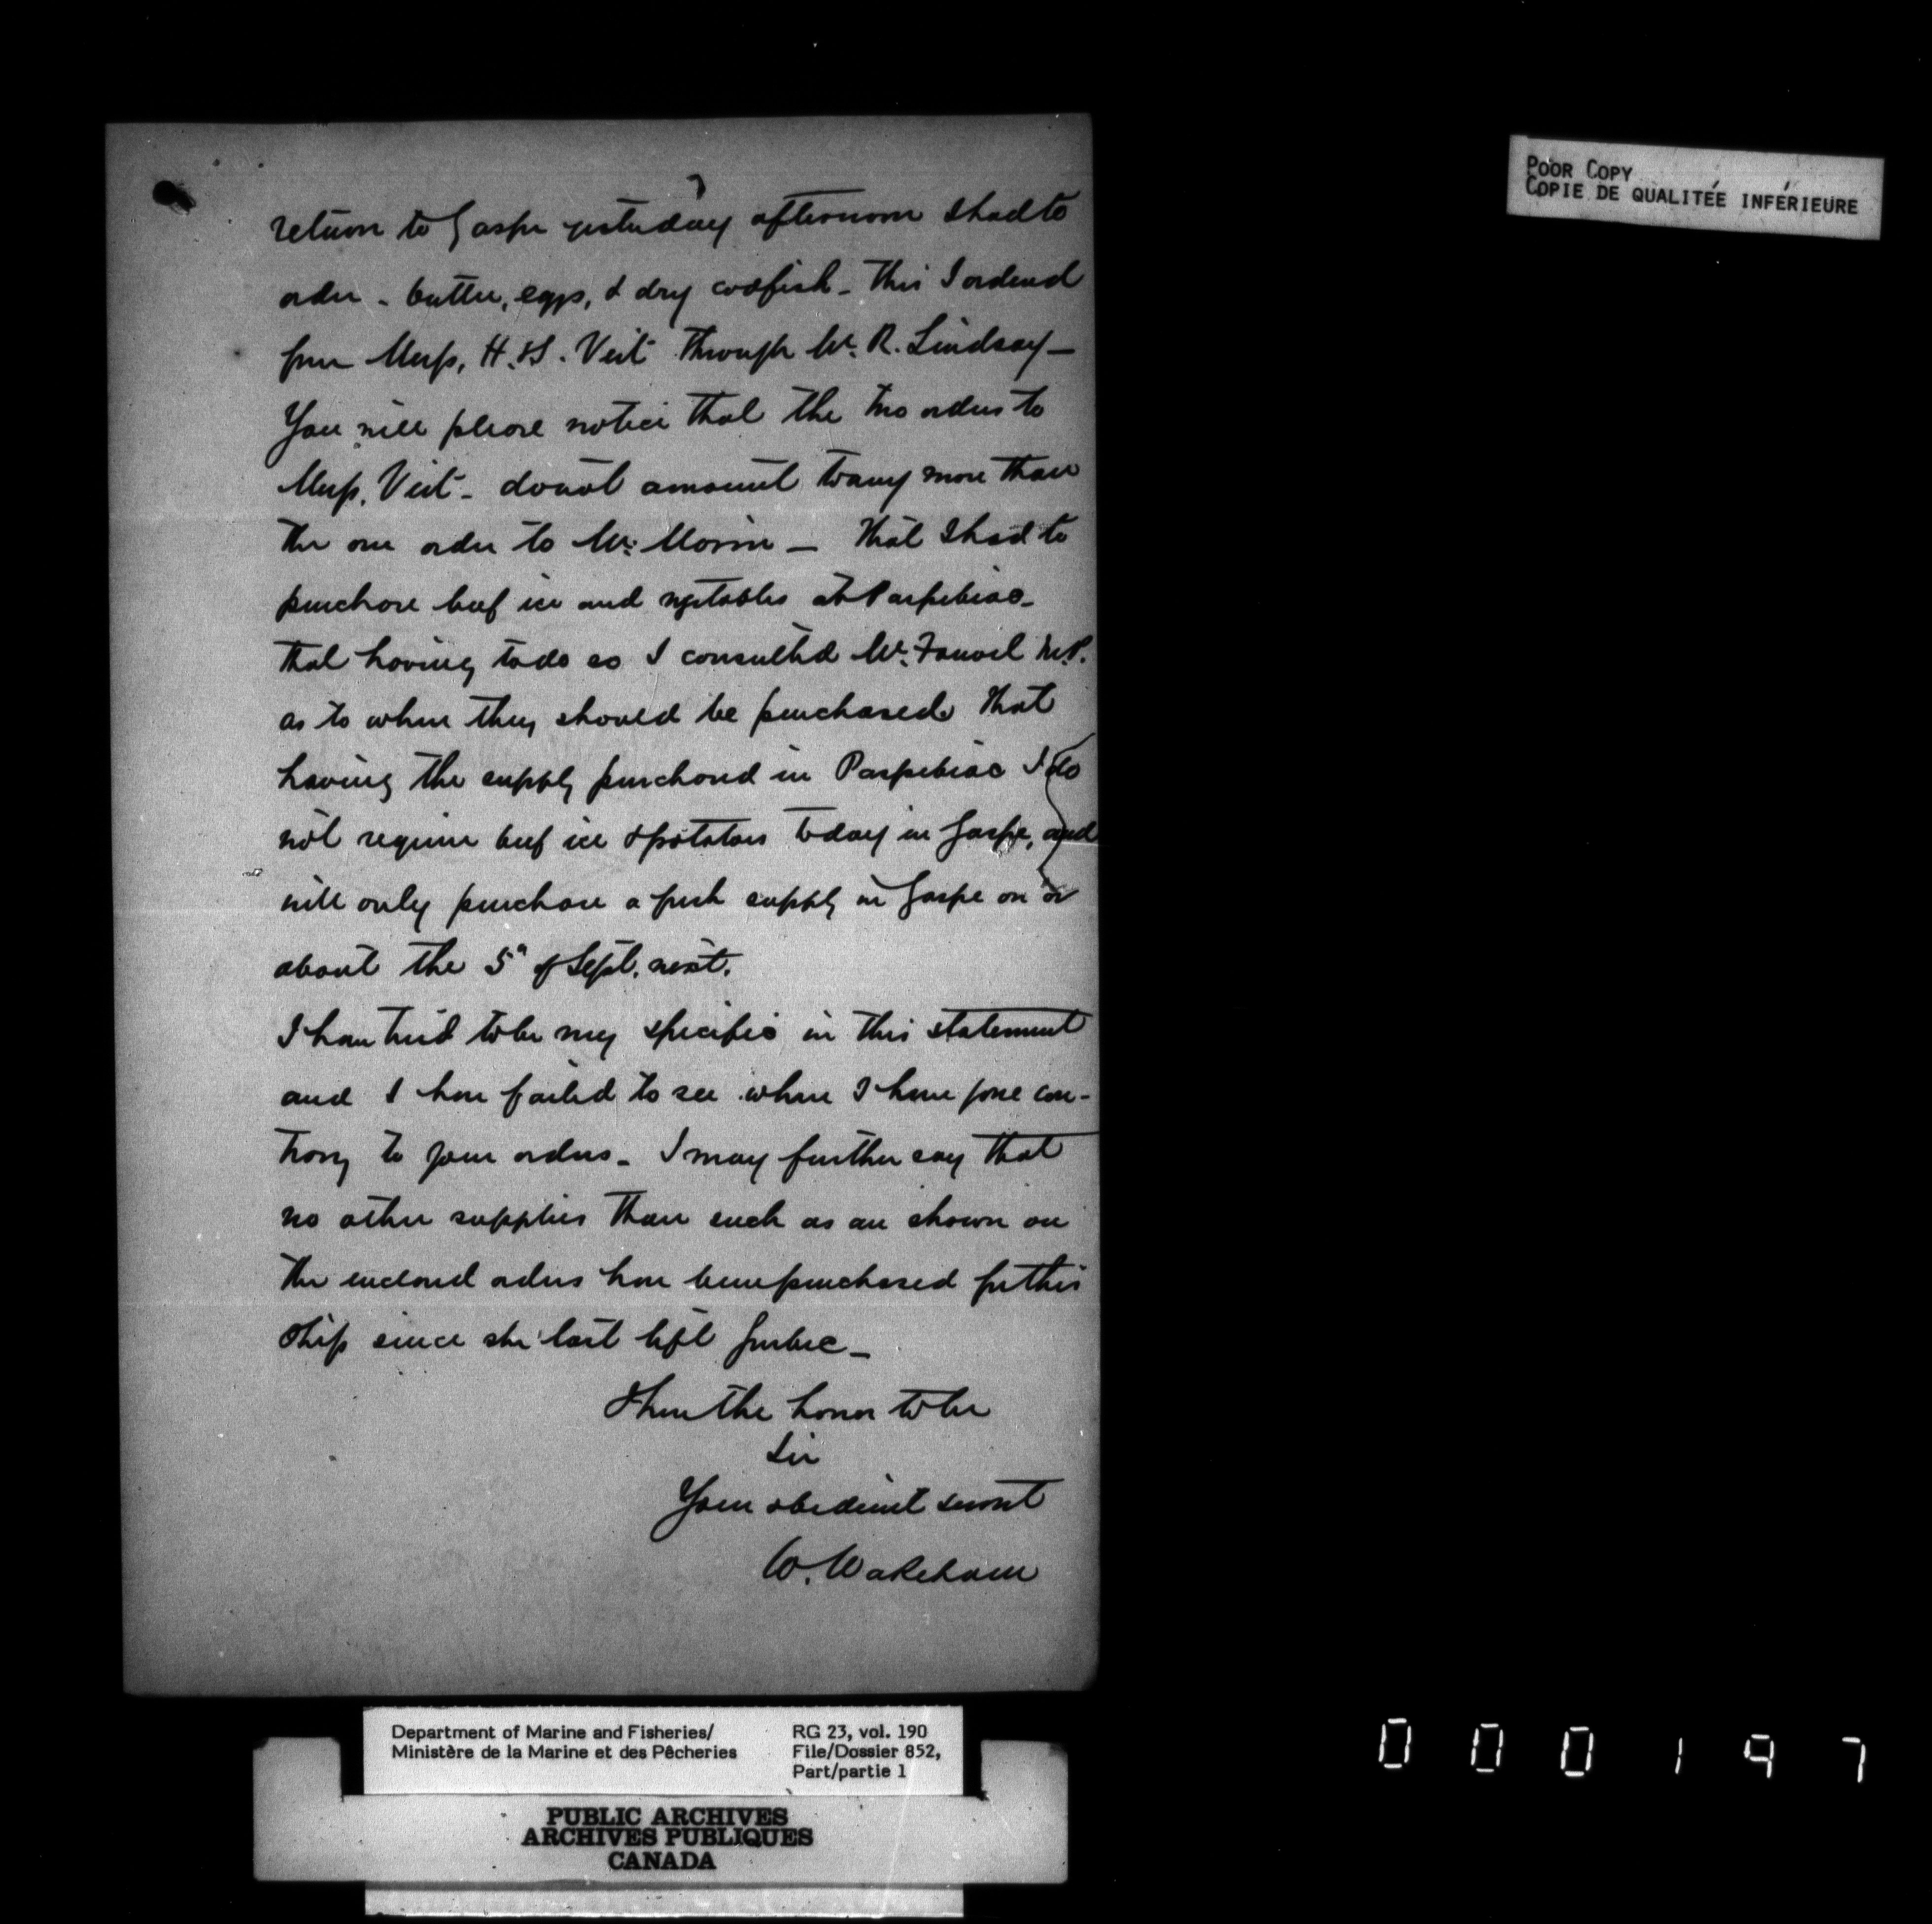 7
return to Gaspe yesterday afternoon I had to
order - butter, eggs, & dry codfish - This I ordered
from Messrs, H. & J. Veit through Mr. R. Lindsay -
You will please notice that the two orders to
Messrs. Veit - do not amount to any more than
the one order to Mr. Morin - That I had to
purchase beef ice and vegetables at Paspebiac -
that having to do so I consulted Mr. Fauvel M.P.
as to where they should be purchased That
having the supply purchased in Paspebiac I do
not require beef ice & potatoes today in Gaspe, and
will only purchase a fresh supply in Gaspe on or
about the 5" of Sept. next.
I have tried to be very specific in this statement
and I have failed to see where I have gone con-
trary to your orders - I may further say that
no other supplies than such as are shown on
the enclosed orders have been purchased for this
ship since she last left Quebec -
I have the honor to be
Sir
Your obedient servant
W. Wakeham
POOR COPY
COPIE DE QUALITÉE INFÉRIEURE
Department of Marine and Fisheries/
Ministère de la Marine et des Pêcheries
RG 23, vol. 190
File/Dossier 852,
Part/partie 1
PUBLIC ARCHIVES
ARCHIVES PUBLIQUES
CANADA
000197